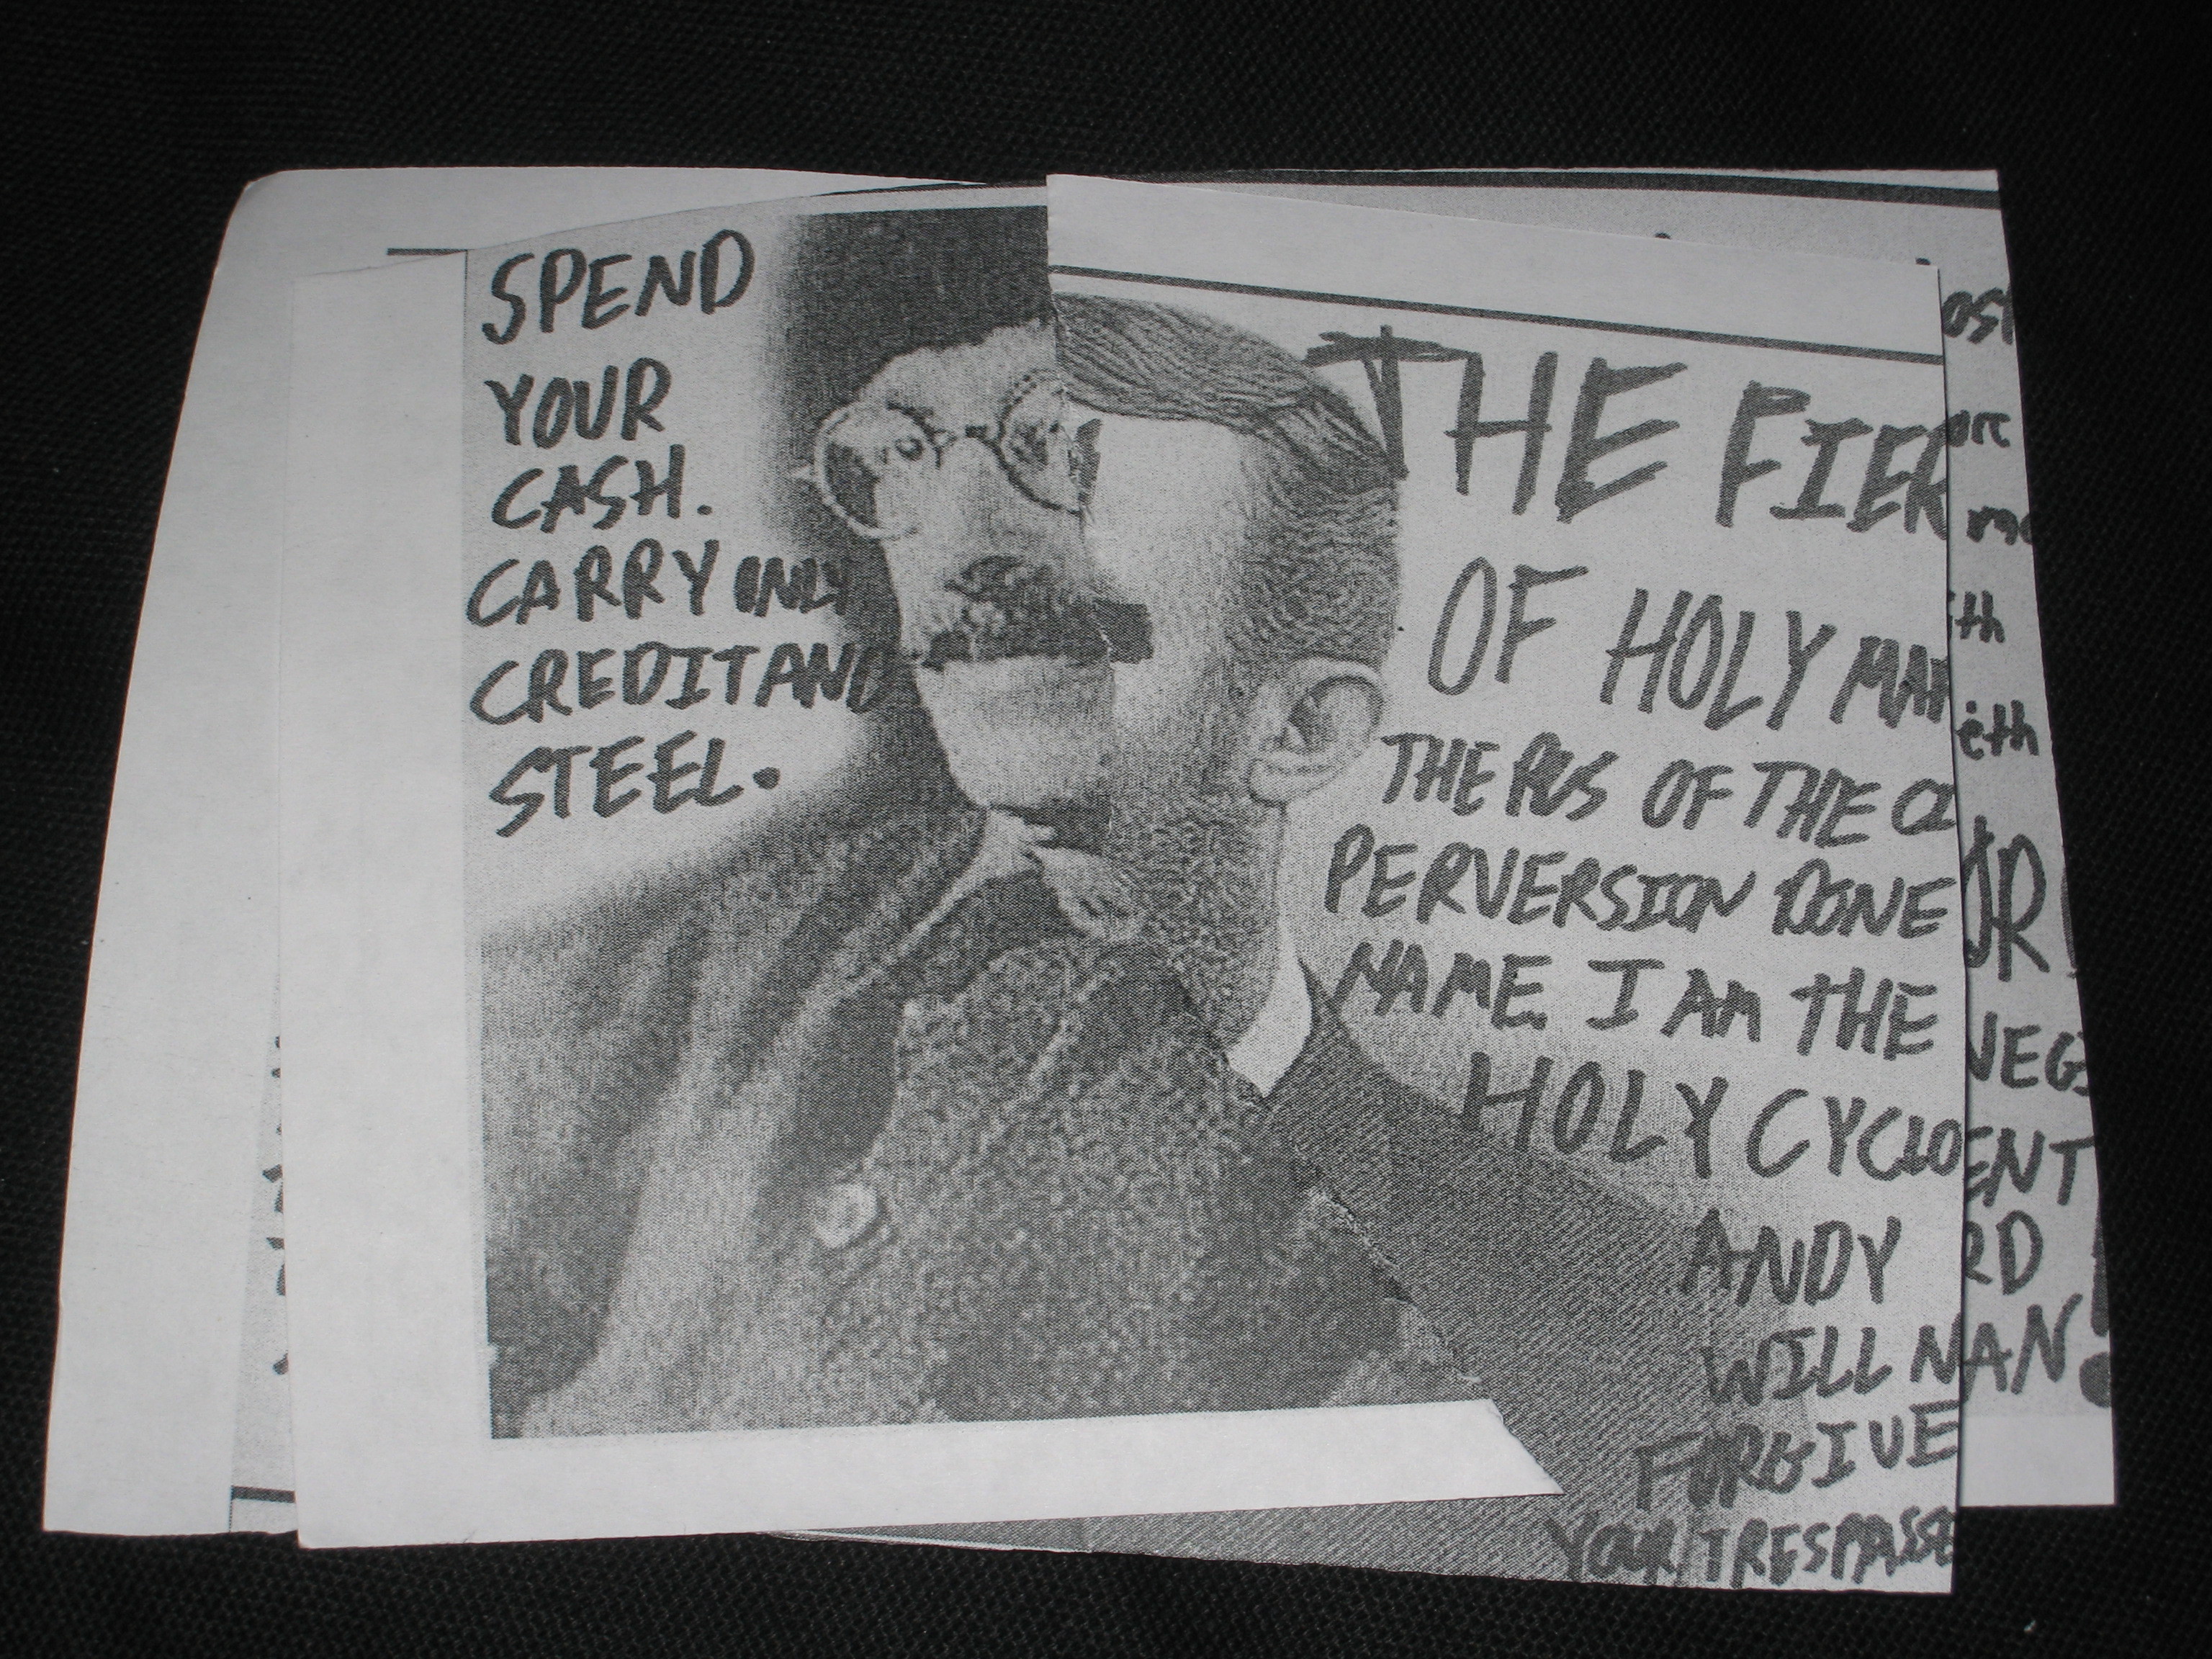 SPEND
YOUR
CASH.
CARRY ONLY
CREDIT AND
STEEL.
THE FIER
OF HOLY MAN
THE PUS OF THE
PERVERSION DONE
NAME. I AM THE
HOLY CYCLO
ANDY
WILL
FORGIVE
YOUR TRESPASSE
ost
ore
mo
th
eth
OR
VEGI
ENT
RD
NAN!